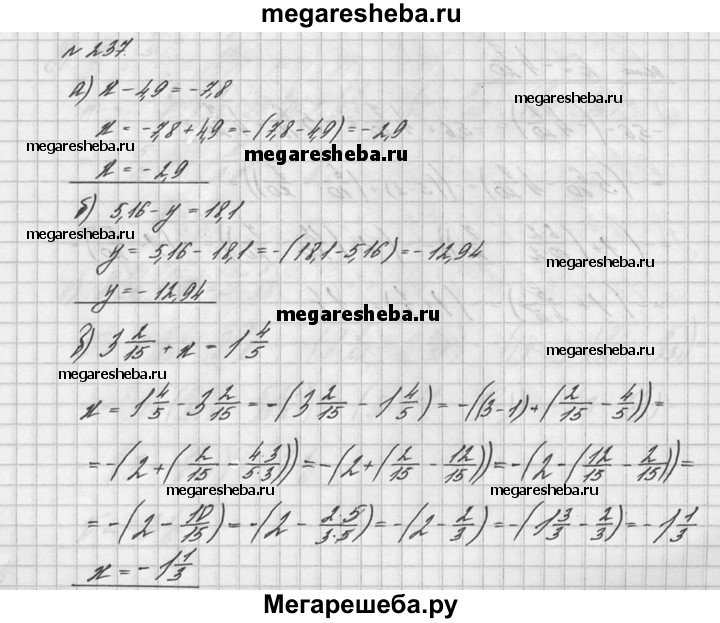 megaresheba.ru
№ 237.
а) x - 4,9 = -7,8
megaresheba.ru
x = -7,8 + 4,9 = -(7,8 - 4,9) = -2,9
megaresheba.ru
megaresheba.ru
x = -2,9
б) 5,16 - y = 18,1
megaresheba.ru
y = 5,16 - 18,1 = -(18,1 - 5,16) = -12,94
megaresheba.ru
y = -12,94
megaresheba.ru
в) 3 2/15 + x = 1 4/5
megaresheba.ru
megaresheba.ru
x = 1 4/5 - 3 2/15 = -(3 2/15 - 1 4/5) = -((3-1) + (2/15 - 4/5)) =
= -(2 + (2/15 - 4·3/5·3)) = -(2 + (2/15 - 12/15)) = -(2 - (12/15 - 2/15)) =
megaresheba.ru
megaresheba.ru
= -(2 - 10/15) = -(2 - 2·5/3·5) = -(2 - 2/3) = -(1 3/3 - 2/3) = -1 1/3
megaresheba.ru
x = -1 1/3
Мегарешеба.ру